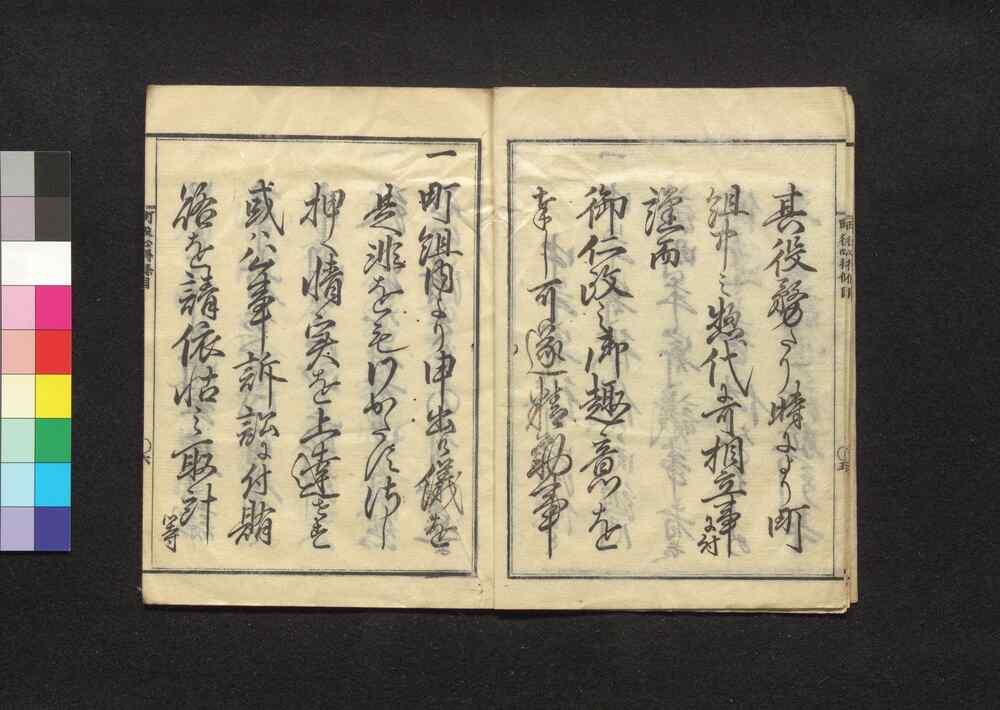 其役務たり時により町
組中之惣代に可相立事に付
謹而
御仁政之御趣意を
奉し可遂精勤事
一町組内より申出る儀を
是非をもわかたす
押へ情実を上達せす
或ハ公事訴訟に付賄
賂を請依怙之取計等